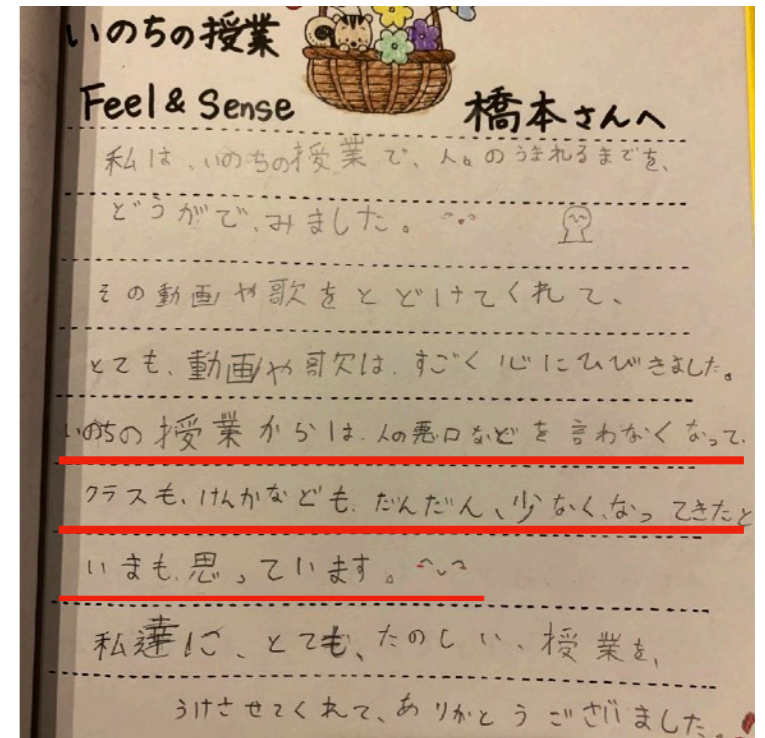 いのちの授業
Feel & Sense 橋本さんへ
私は、いのちの授業で、人のうまれるまでを、
どうがで、みました。
その動画や歌をとどけてくれて、
とても、動画や歌は、すごく心にひびきました。
いのちの授業からは、人の悪口などを言わなくなって、
クラスも、けんかなども、だんだん、少なく、なってきたと
いまも、思っています。
私達に、とても、たのしい、授業を、
うけさせてくれて、ありがとうございました。